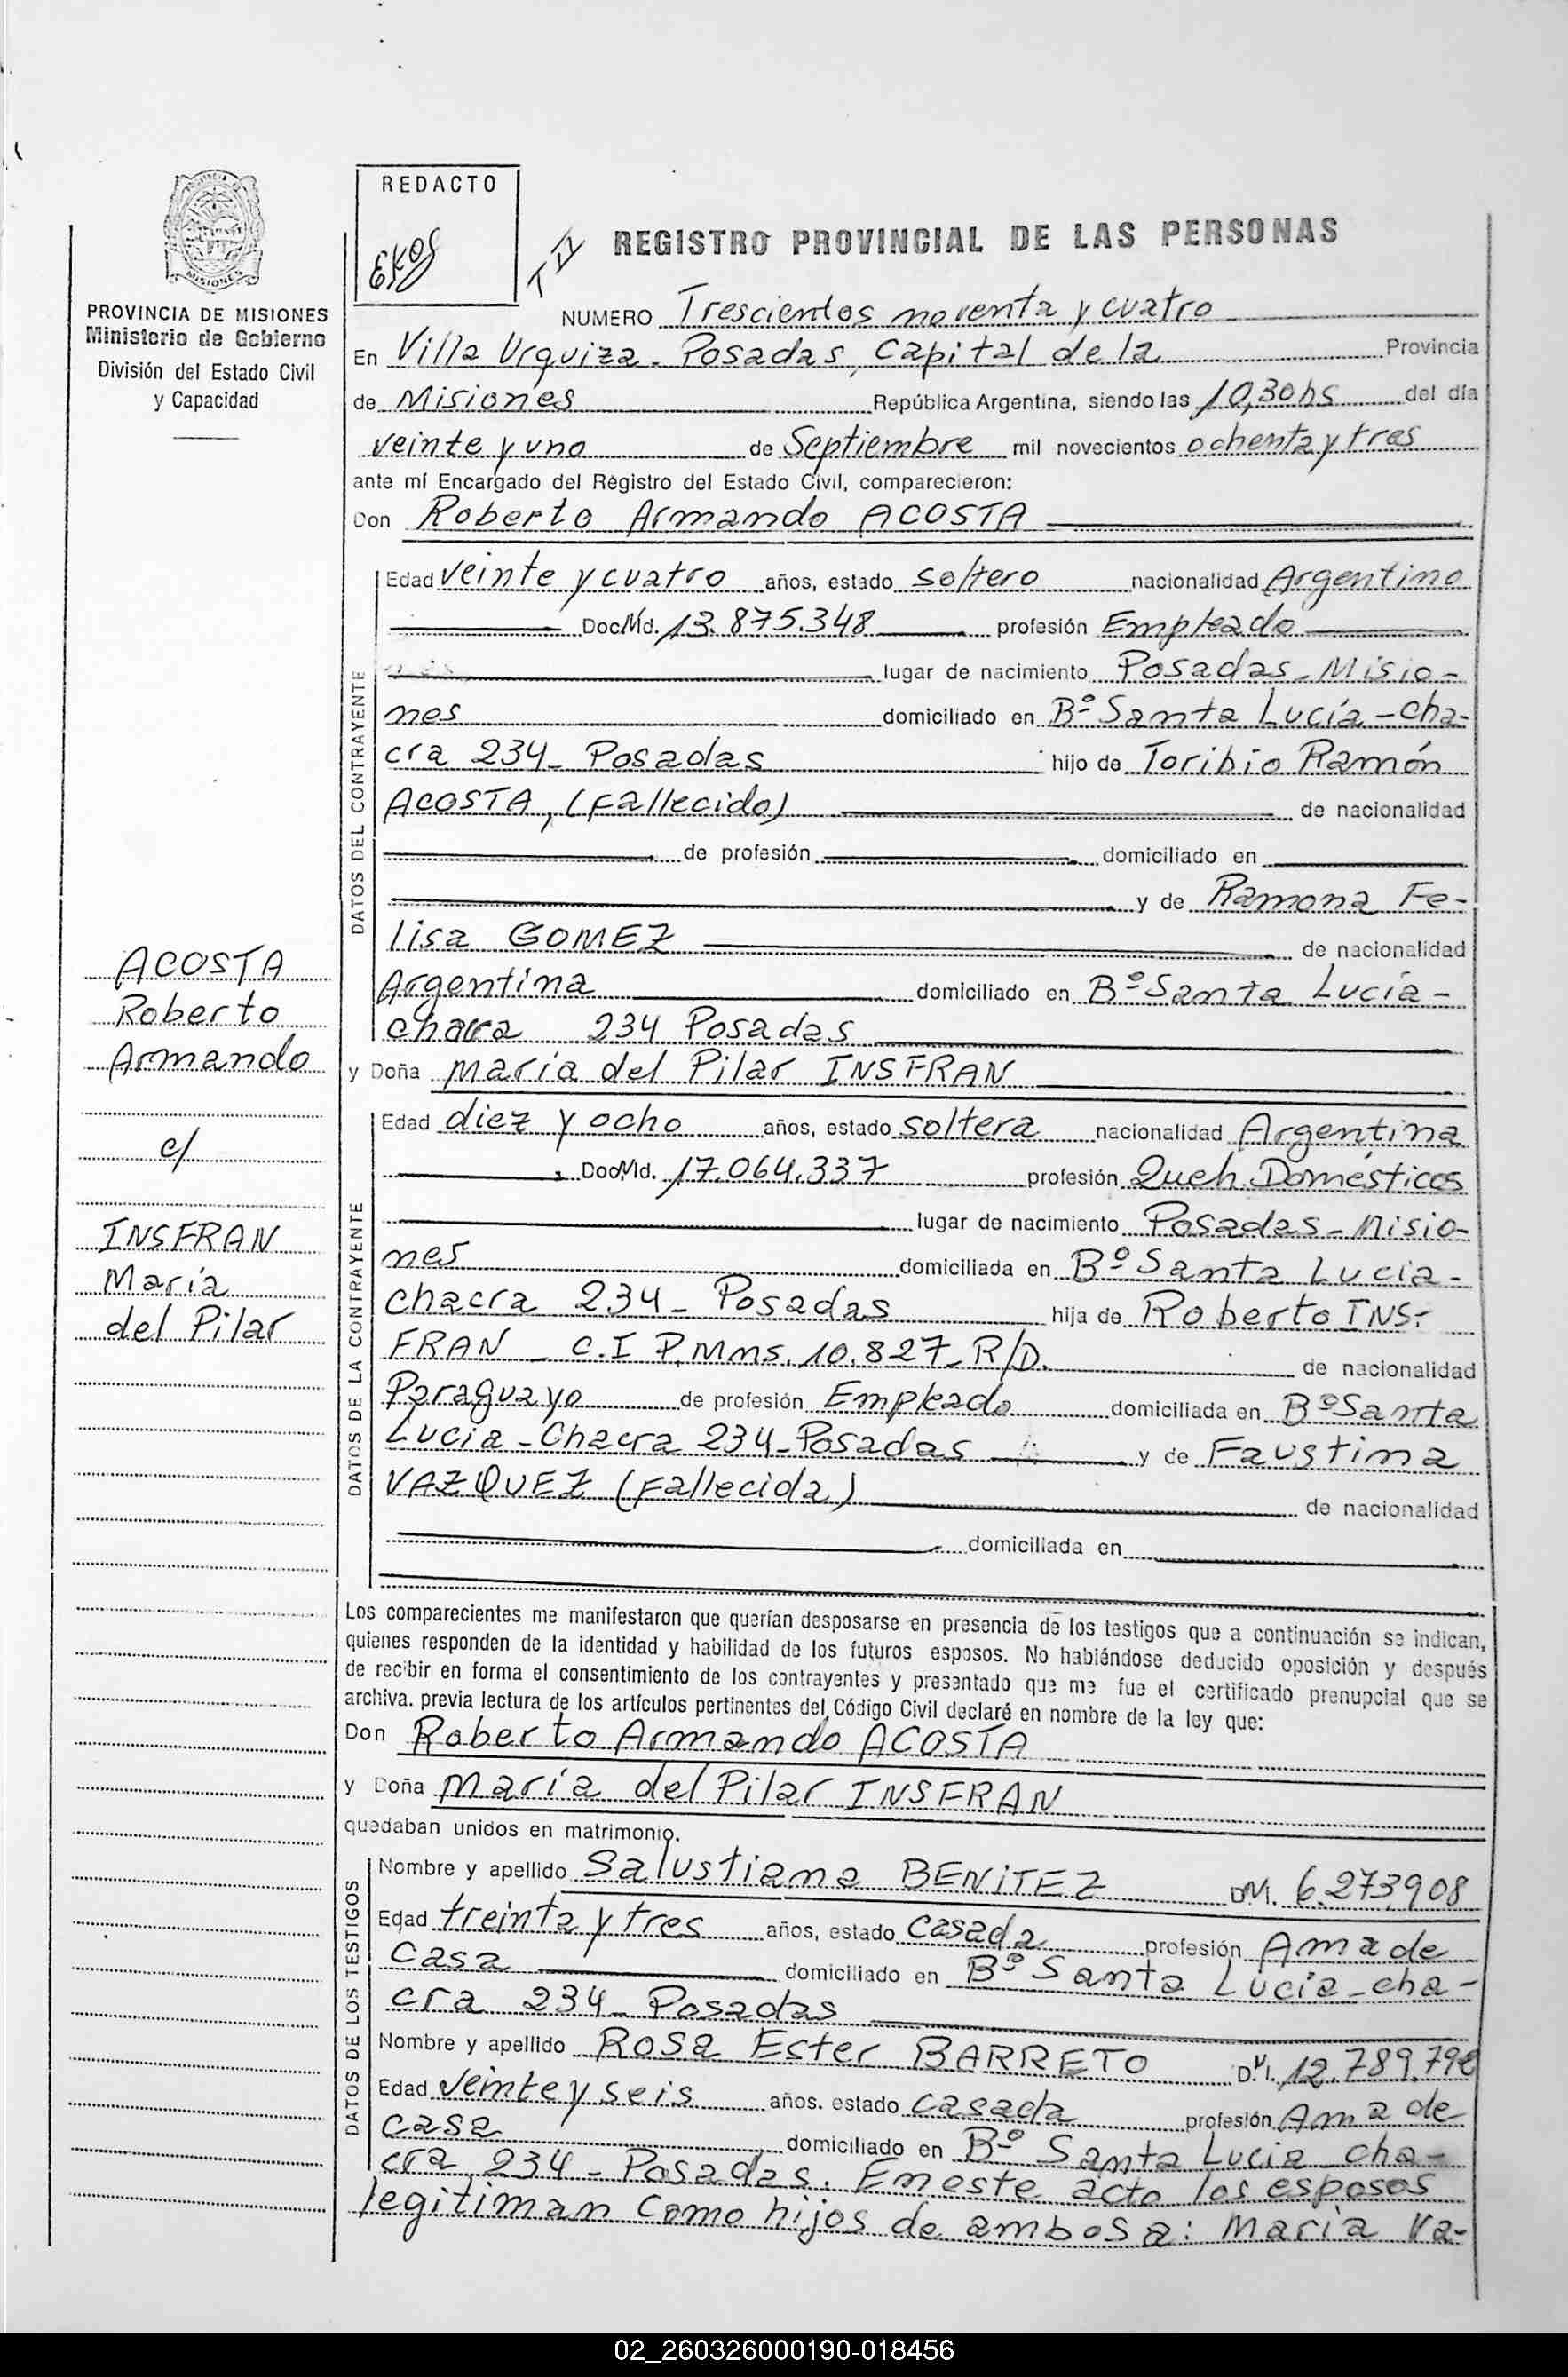 REDACTO
MISIONES
PROVINCIA DE MISIONES
Ministerio de Gobierno
División del Estado Civil
y Capacidad
REGISTRO PROVINCIAL DE LAS PERSONAS
NUMERO Trescientos noventa y cuatro
En Villa Urquiza - Posadas, Capital de la Provincia
de Misiones República Argentina, siendo las 10,30hs del día
veinte y uno de Septiembre mil novecientos ochenta y tres
ante mí Encargado del Registro del Estado Civil, comparecieron:
Don Roberto Armando ACOSTA
DATOS DEL CONTRAYENTE
Edad veinte y cuatro años, estado soltero nacionalidad Argentino
Doc.Nd. 13.875.348 profesión Empleado
lugar de nacimiento Posadas - Misio-
nes domiciliado en Bº Santa Lucía - Cha-
cra 234 - Posadas hijo de Toribio Ramón
ACOSTA, (fallecido) de nacionalidad
de profesión domiciliado en
y de Ramona Fe-
lisa GOMEZ de nacionalidad
Argentina domiciliado en Bº Santa Lucía -
chacra 234 Posadas
y Doña María del Pilar INSFRAN
DATOS DE LA CONTRAYENTE
Edad diez y ocho años, estado soltera nacionalidad Argentina
Doc.Nd. 17.064.337 profesión Queh. Domésticos
lugar de nacimiento Posadas - Misio-
nes domiciliada en Bº Santa Lucía -
chacra 234 - Posadas hija de Roberto INS-
FRAN - C.I P.Mnes. 10.827 - R/D. de nacionalidad
Paraguayo de profesión Empleado domiciliada en Bº Santa
Lucia - Chacra 234 - Posadas y de Faustina
VAZQUEZ (Fallecida) de nacionalidad
domiciliada en
ACOSTA
Roberto
Armando
c/
INSFRAN
María
del Pilar
Los comparecientes me manifestaron que querían desposarse en presencia de los testigos que a continuación se indican,
quienes responden de la identidad y habilidad de los futuros esposos. No habiéndose deducido oposición y después
de recibir en forma el consentimiento de los contrayentes y presentado que me fue el certificado prenupcial que se
archiva. previa lectura de los artículos pertinentes del Código Civil declaré en nombre de la ley que:
Don Roberto Armando ACOSTA
y Doña María del Pilar INSFRAN
quedaban unidos en matrimonio.
DATOS DE LOS TESTIGOS
Nombre y apellido Salustiana BENITEZ DM. 6.273,908
Edad treinta y tres años, estado casada profesión Ama de
casa domiciliado en Bº Santa Lucía - cha-
cra 234 - Posadas
Nombre y apellido ROSA Ester BARRETO D.N.I. 12.789.79
Edad veinte y seis años. estado casada profesión Ama de
casa domiciliado en Bº Santa Lucia cha-
cra 234 - Posadas. En este acto los esposos
legitiman como hijos de ambos a: María Va-
02_260326000190-018456